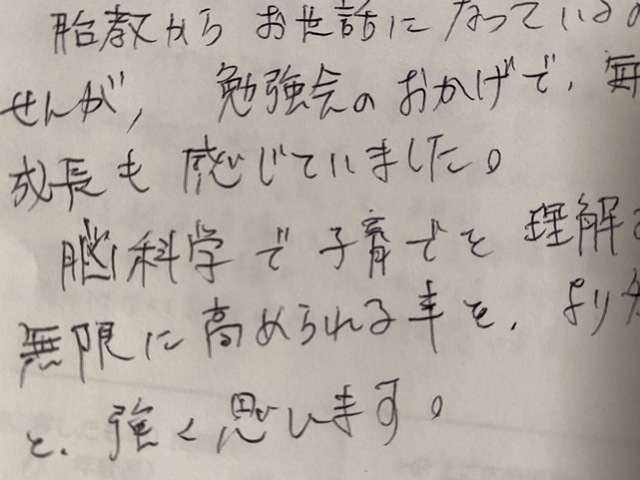 胎教からお世話になっているの
せんが、勉強会のおかげで、毎
成長も感じていました。
脳科学で子育でを理解
無限に高められる事を、より
と、強く思います。